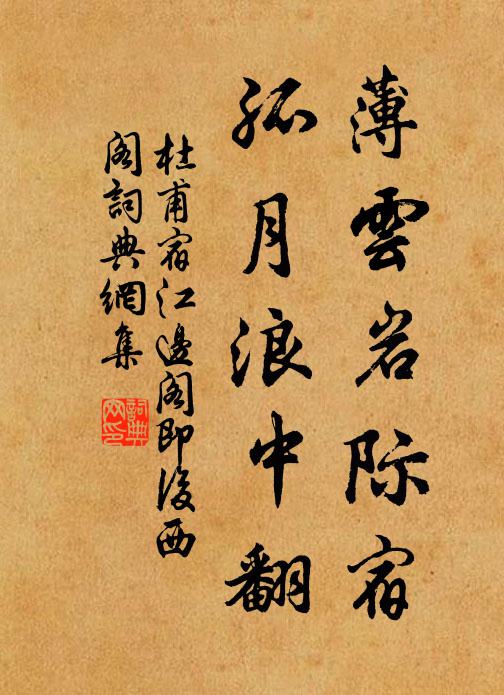 薄雲岩际宿
孤月浪中翻
杜甫宿江邊阁即後西
阁詞典網集
詞典
網印